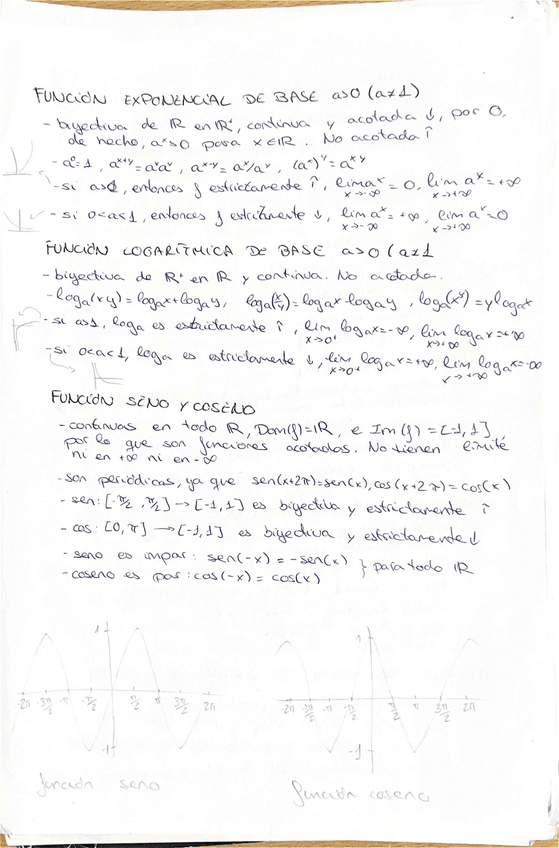 FUNCIÓN EXPONENCIAL DE BASE a>0 (a≠1)
- biyectiva de ℝ en ℝ⁺, continua y acotada ↓, por 0,
de hecho, aˣ>0 para x∈ℝ. No acotada ↑
- a⁰=1, aˣ⁺ʸ=aˣaʸ, aˣ⁻ʸ=aˣ/aʸ, (aˣ)ʸ=aˣʸ
- si a>1, entonces f estrictamente ↑, lim aˣ = 0, lim aˣ = +∞
x→-∞ x→+∞
- si 0<a<1, entonces f estrictamente ↓, lim aˣ = +∞, lim aˣ=0
x→-∞ x→+∞
FUNCIÓN LOGARÍTMICA DE BASE a>0 (a≠1
- biyectiva de ℝ⁺ en ℝ y continua. No acotada.
- logₐ(xy)=logₐx+logₐy, logₐ(x/y)=logₐx-logₐy, logₐ(xʸ)=y logₐx
- si a>1, logₐ es estrictamente ↑, lim logₐx=-∞, lim logₐx=+∞
x→0⁺ x→+∞
- si 0<a<1, logₐ es estrictamente ↓, lim logₐx=+∞, lim logₐx=-∞
x→0⁺ x→+∞
FUNCIÓN SENO Y COSENO
- continuas en todo ℝ, Dom(f)=ℝ, e Im(f)=[-1,1]
por lo que son funciones acotadas. No tienen límite
ni en +∞ ni en -∞
- son periódicas, ya que sen(x+2π)=sen(x), cos(x+2π)=cos(x)
- sen: [-π/2, π/2] → [-1,1] es biyectiva y estrictamente ↑
- cos: [0,π] → [-1,1] es biyectiva y estrictamente ↓
- seno es impar: sen(-x) = -sen(x) } para todo ℝ
- coseno es par: cos(-x) = cos(x)
1 1
-2π -3π/2 -π -π/2 π/2 π 3π/2 2π -2π -3π/2 -π -π/2 π/2 π 3π/2 2π
-1 -1
función seno función coseno